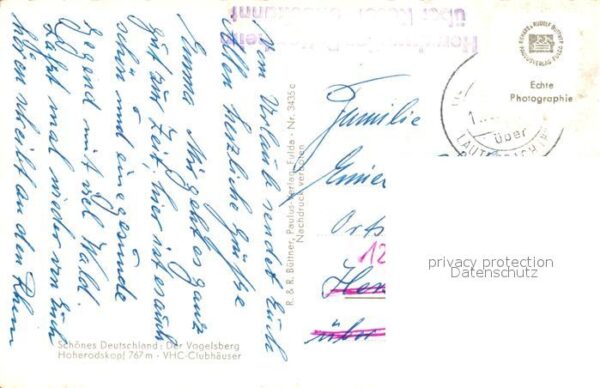 Vom Urlaub sendet Euch
allen herzliche Grüße
Emma Mir geht es ganz
gut zur Zeit, hier ist es auch
schön und eine gesunde
Gegend mit viel Wald.
Laßt mal wieder von Euch
hören schreibt an den Rhein
Schönes Deutschland: Der Vogelsberg
Hoherodskopf 767 m - VHC-Clubhäuser
R. & R. Büttner, Paulus-Verlag, Fulda - Nr. 3435 c
Nachdruck verboten
RICHARD & RUDOLF BÜTTNER
PAULUSVERLAG FULDA
Echte
Photographie
über
LAUTERBACH
Familie
Orts
12
über
privacy protection
Datenschutz